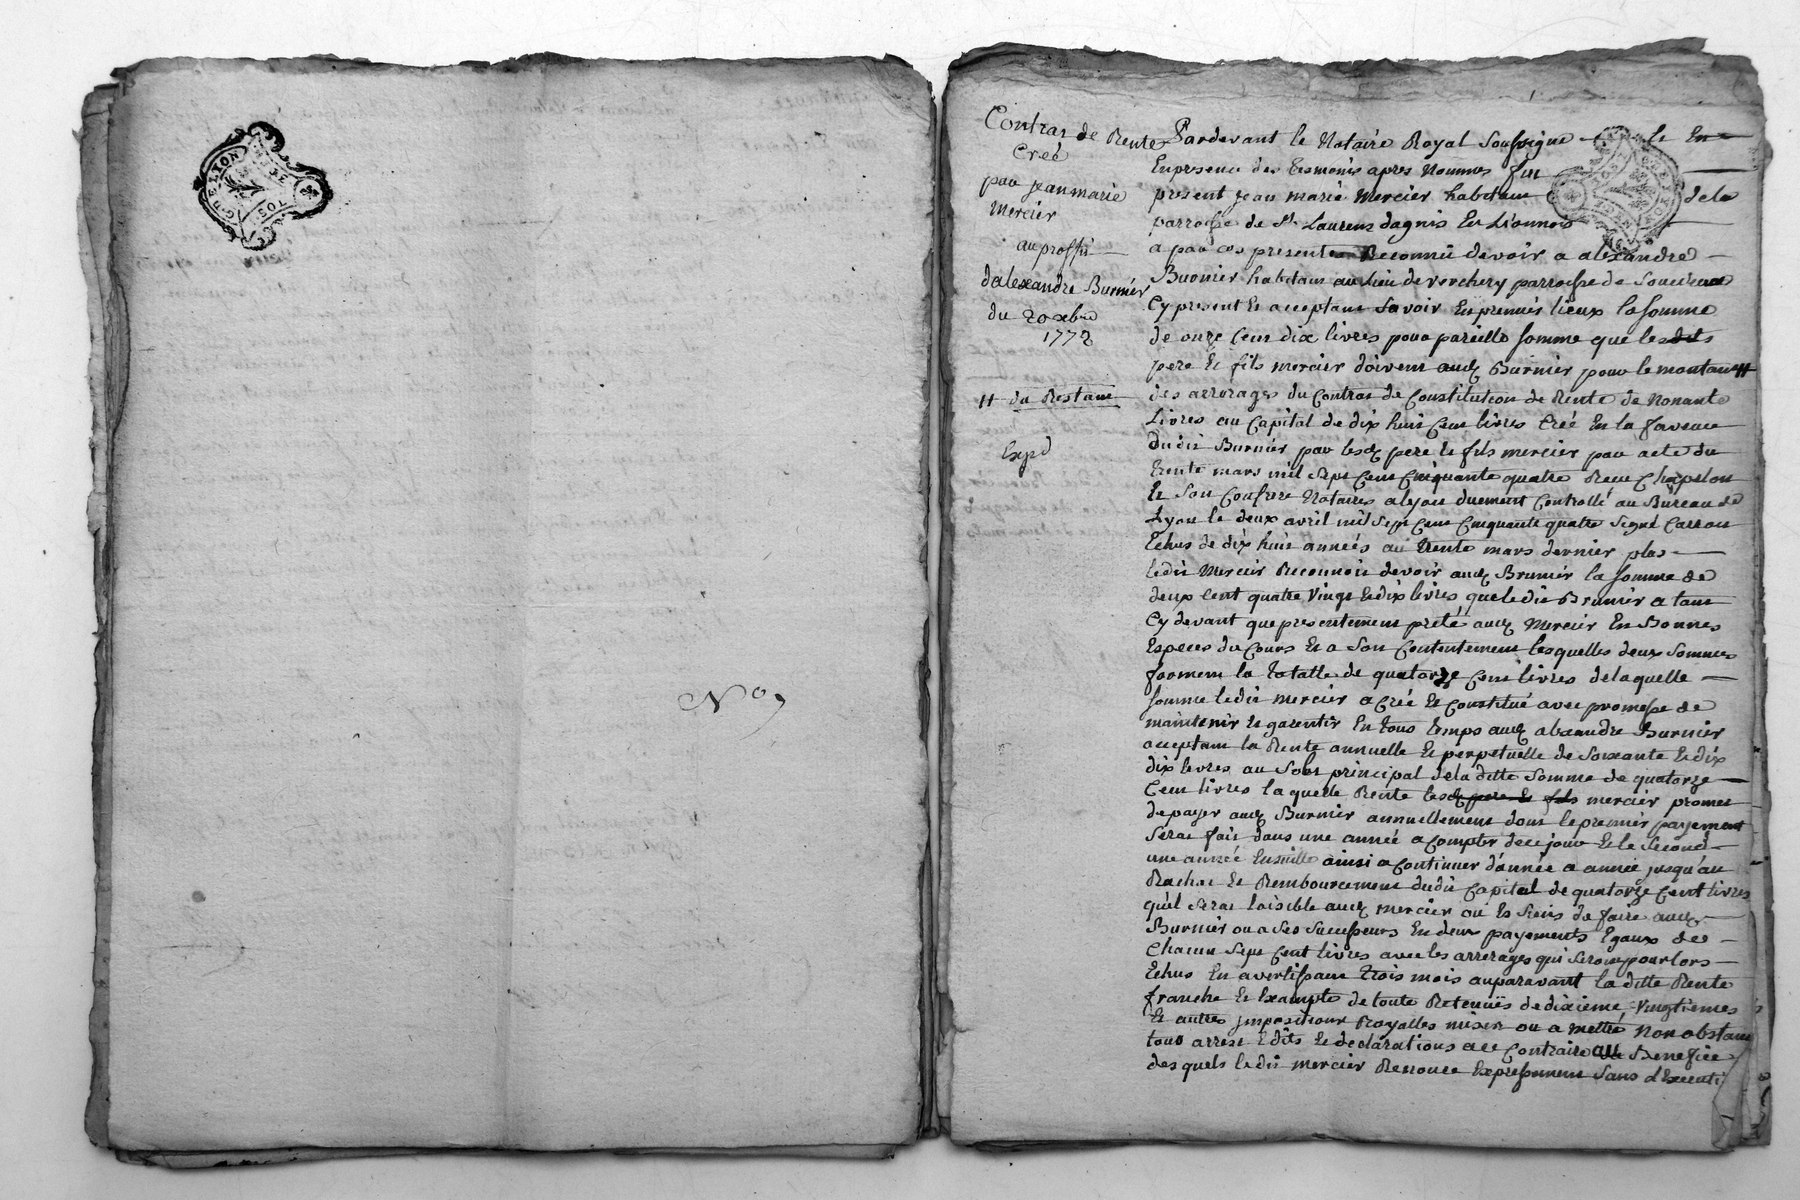 G. DE LYON
2 S.
N°
Contras de Rente
Creé
par jean marie
Mercier
au proffit
d'alexandre Burnier
du 20 xbre
1772
# du Restant
Expd
Pardevant le Notaire Royal Soussigné le En
En presence des temoins apres Nommés fut
present jean marie Mercier habitant de la
parroisse de St Laurens dagnis En Lionnois
a par ces presentes Reconnu devoir a alexandre
Burnier habitant au Lieu de verchery parroisse de
Cy present Et acceptant Savoir En premier lieux la somme
de onze Cent dix livres pour pareille somme que lesdits
pere Et fils mercier doivent audt Burnier pour le montant #
des arrerages du Contras de Constitution de Rente de Nonante
Livres au Capital de dix huit Cent livres Creé En la faveur
dudit Burnier par lesdt pere Et fils mercier par acte du
trente mars mil Sept Cent Cinquante quatre Recu Chapelon
Et Son Confrere Notaires a lyon duement Controllé au Bureau de
Lyon le deux avril mil Sept Cent Cinquante quatre Signé Carron
Echus de dix huit anneés au trente mars dernier plus
ledit Mercier Reconnois devoir audt Brunier la somme de
deux Cent quatre Vingt Et dix livres que ledit Brunier a tant
Cy devant que presentement preté audt Mercier En Bonnes
Especes du Cours Et a Son Contentement lesquelles deux Sommes
forment la totalle de quatorze Cent livres de laquelle
somme ledit mercier a Creé Et Constitué avec promesse de
maintenir Et garentir En tous temps audt alexandre Burnier
acceptant la Rente annuelle Et perpetuelle de Soixante Et dix
dix livres au Sort principal de la ditte Somme de quatorze
Cent livres laquelle Rente lesdt pere Et fils mercier promet
de payer audt Burnier annuellement dont le premier payement
Serat fait dans une année a Compter de ce jour Et le Second
une année Ensuitte ainsi a Continuer d'année a année jusqu'au
Rachat Et Rembourcement dudit Capital de quatorze Cent livres
qu'il Serat loisible audt mercier ou Es Siens de faire audt
Burnier ou a Ses Successeurs En deux payements Egaux de
Chacun Sept Cent livres avec les arrerages qui Seront pour lors
Echus En avertissant trois mois auparavant la ditte Rente
franche Et Exampte de toute Retenuës de dixieme Vingtiemes
Et autres jmpositions Royalles mises ou a mettre Non obstant
tous arrest Edits Et declarations a ce Contraire au Benefice
des quels ledit mercier Renonce Expressement Sans d'Executi